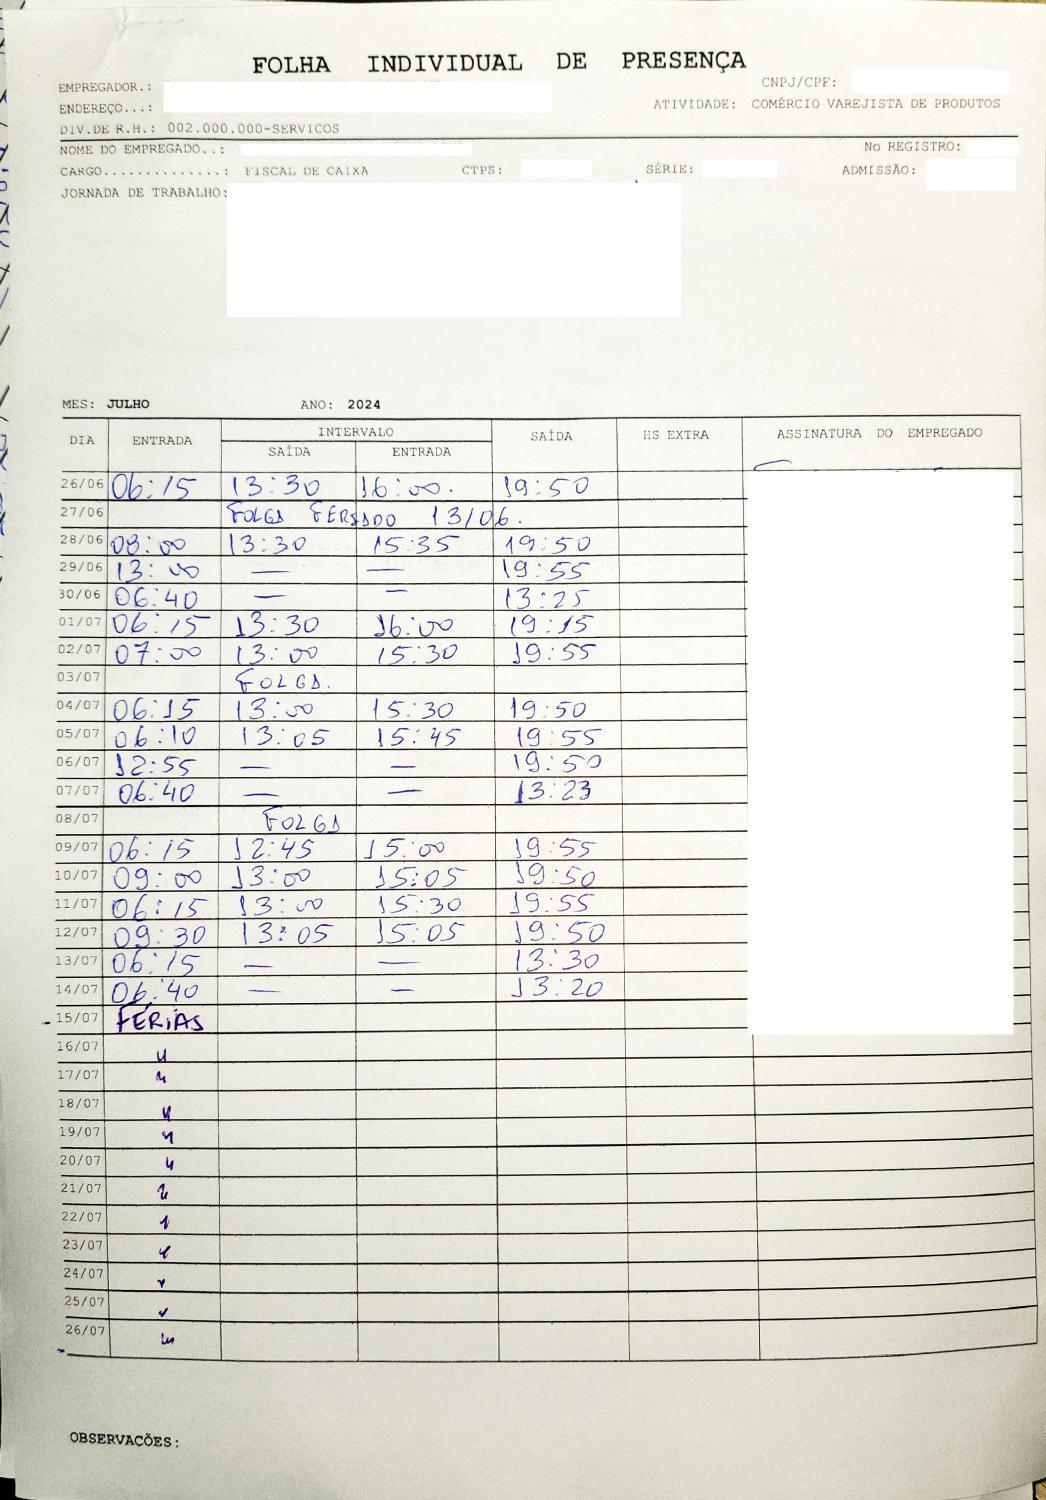 FOLHA INDIVIDUAL DE PRESENÇA
EMPREGADOR.:
CNPJ/CPF:
ENDEREÇO...:
ATIVIDADE: COMÉRCIO VAREJISTA DE PRODUTOS
DIV.DE R.H.: 002.000.000-SERVICOS
NOME DO EMPREGADO..:
No REGISTRO:
CARGO.............: FISCAL DE CAIXA CTPS: SÉRIE: ADMISSÃO:
JORNADA DE TRABALHO:
MES: JULHO ANO: 2024
DIA ENTRADA INTERVALO SAÍDA HS EXTRA ASSINATURA DO EMPREGADO
SAÍDA ENTRADA
26/06 06:15 13:30 16:00. 19:50
27/06 FOLGA FERIADO 13/06.
28/06 08:00 13:30 15:35 19:50
29/06 13:00 — — 19:55
30/06 06:40 — — 13:25
01/07 06:15 13:30 16:00 19:15
02/07 07:00 13:00 15:30 19:55
03/07 FOLGA.
04/07 06:15 13:00 15:30 19:50
05/07 06:10 13:05 15:45 19:55
06/07 12:55 — — 19:50
07/07 06:40 — — 13:23
08/07 FOLGA
09/07 06:15 12:45 15:00 19:55
10/07 09:00 13:00 15:05 19:50
11/07 06:15 13:00 15:30 19:55
12/07 09:30 13:05 15:05 19:50
13/07 06:15 — — 13:30
14/07 06:40 — — 13:20
15/07 FÉRIAS
16/07 "
17/07 "
18/07 "
19/07 "
20/07 "
21/07 "
22/07 "
23/07 "
24/07 "
25/07 "
26/07 "
OBSERVAÇÕES: